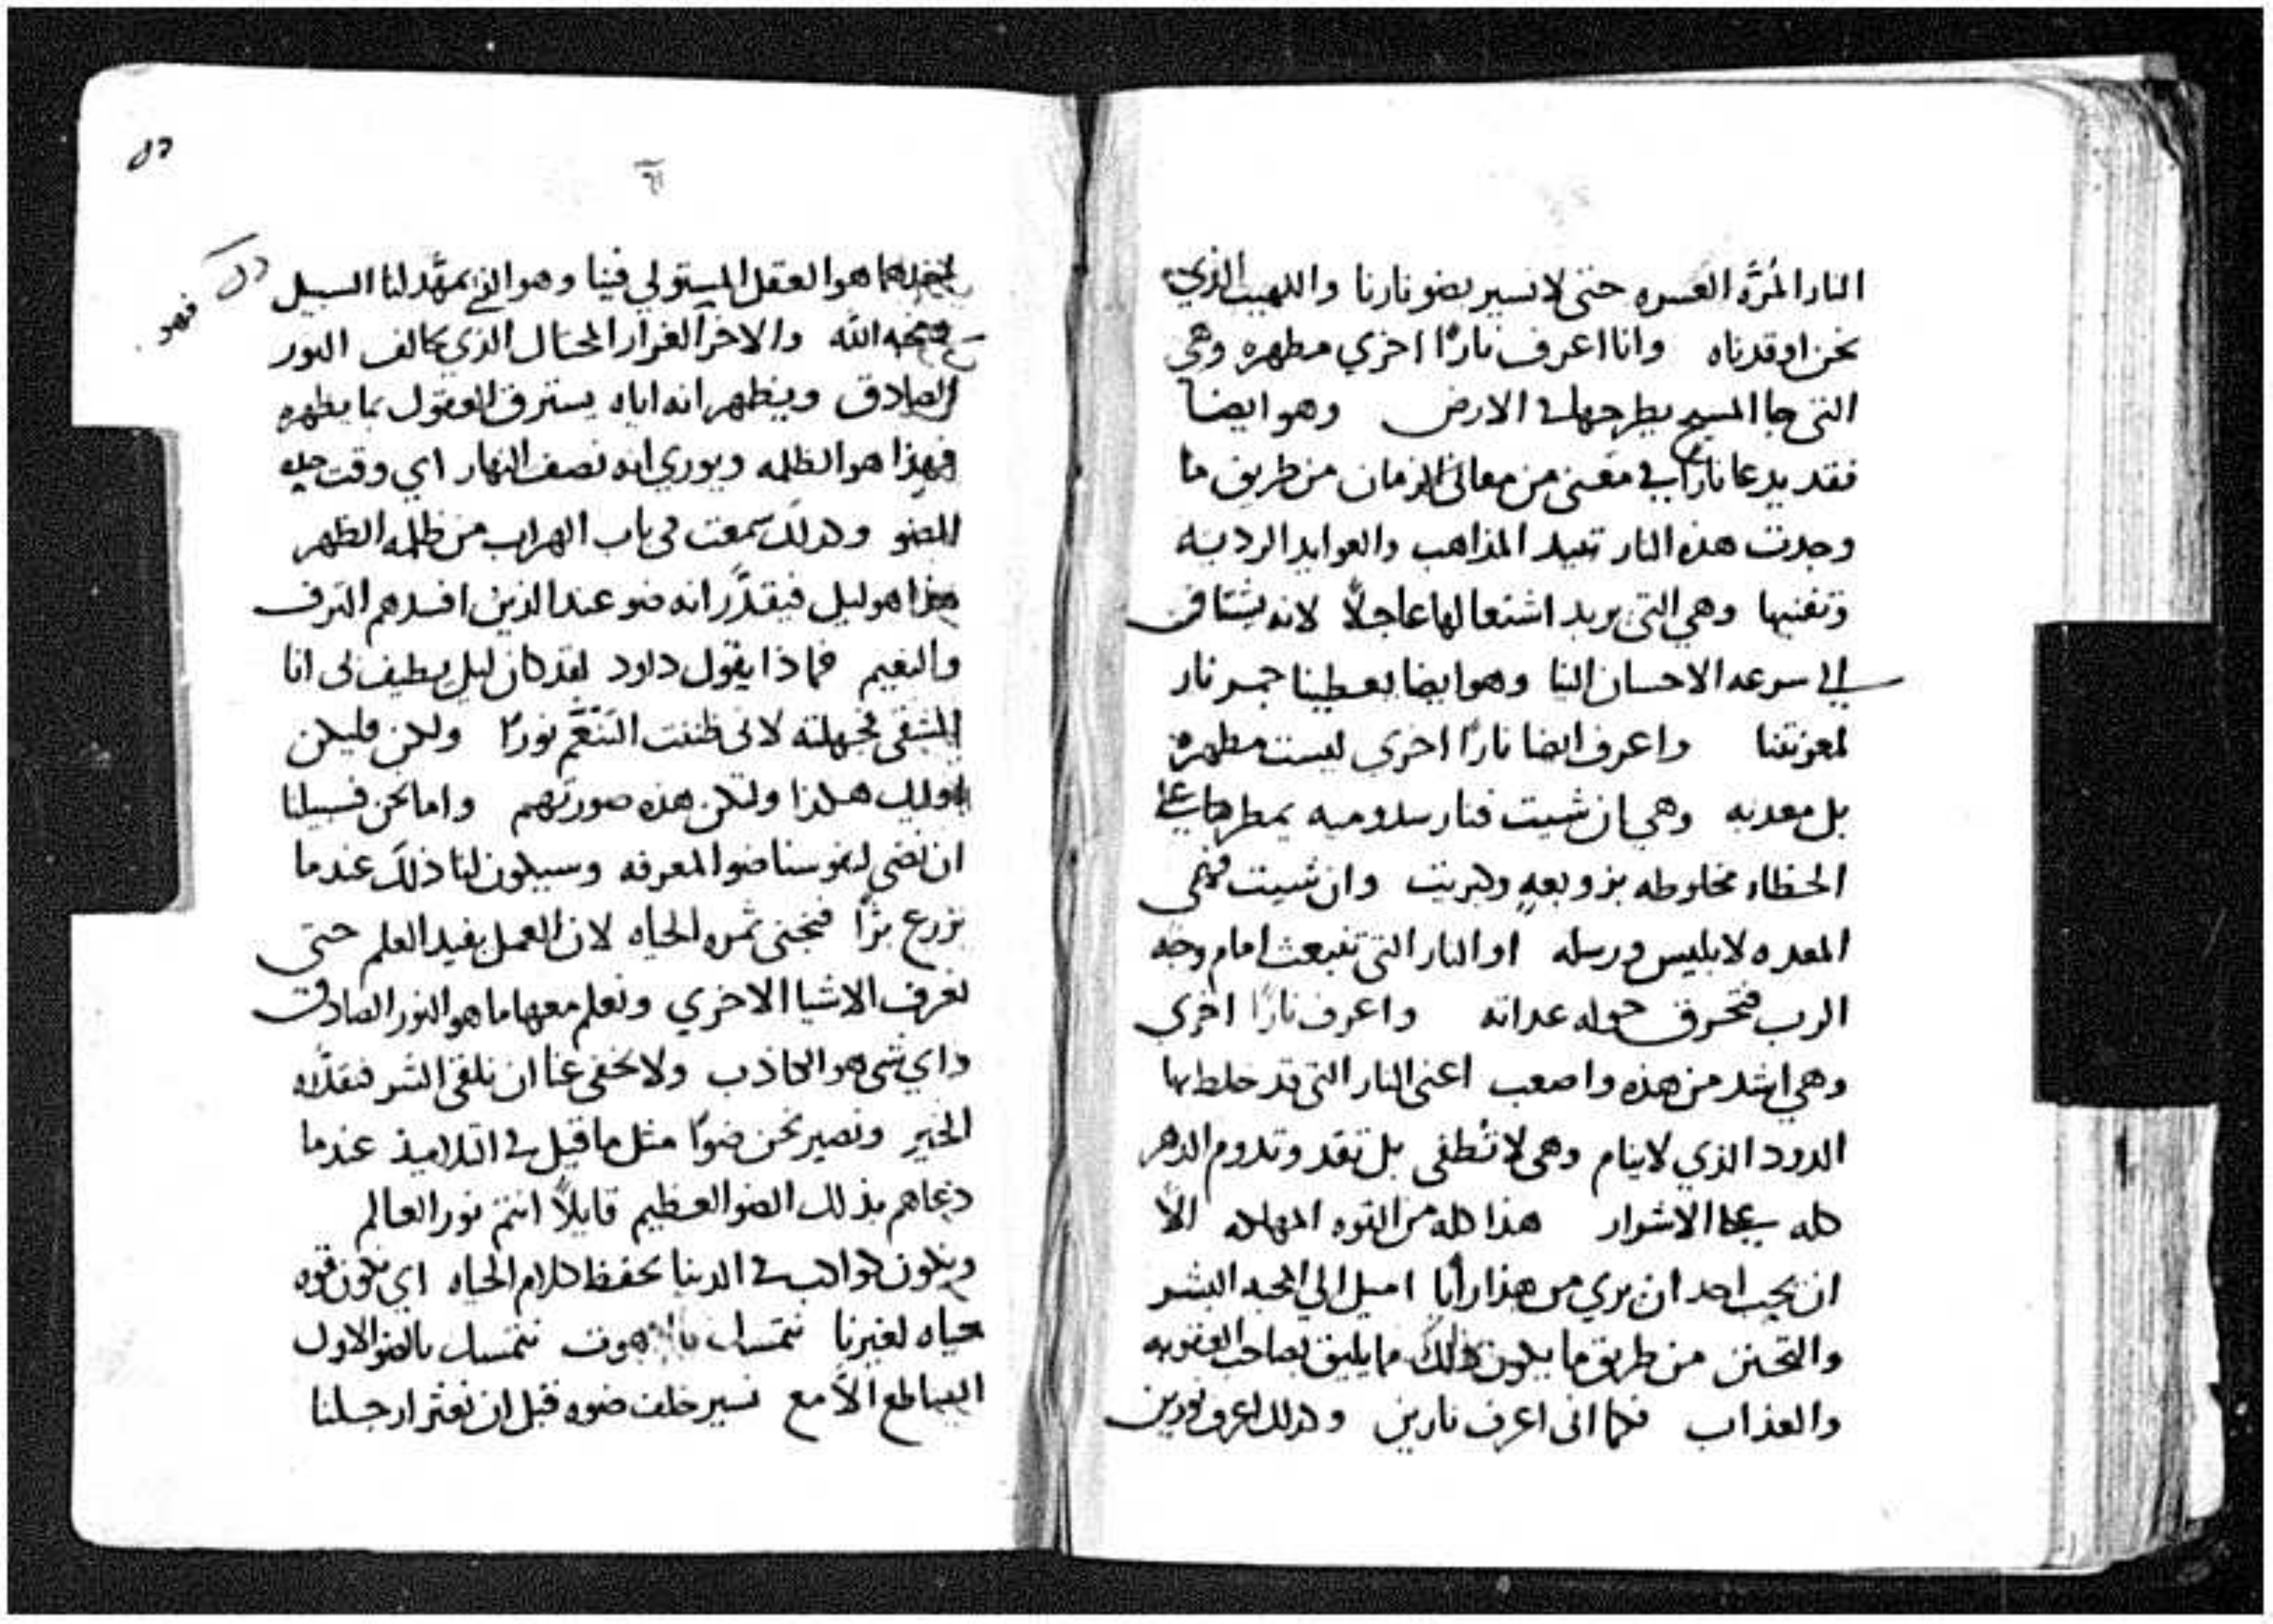 النار المُرَّه العسره حتى لا نسير بضو نارنا واللهيب الذي
نحن اوقدناه وانا اعرف نارًا اخري مطهره وهي
التى جا المسيح يطرحها في الارض وهو ايضا
فقد يدعا نارًا في معنى من معاني الزمان من طريق ما
وجدت هذه النار تبيد المذاهب والعوايد الرديه
وتفنيها وهي التى يريد اشتعالها عاجلًا لانه يشتاق
الي سرعه الاحسان الينا وهو ايضا يعطينا جمر نار
لمعونتنا واعرف ايضا نارًا اخري ليست مطهرة
بل معذبه وهي ان شيت فنار سدوميه يمطرها على
الخطاه مخلوطه بزوبعهٍ وكبريت وان شيت فهى
المعده لابليس ورسله او النار التى تنبعث امام وجه
الرب فتحرق حوله عداته واعرف نارًا اخري
وهي اشد من هذه واصعب اعنى النار التى قد خلط بها
الدود الذي لا ينام وهى لا تُطفى بل تقد وتدوم الدهر
كله على الاشرار هذا كله من القوه المهلكه الّا
ان يحب احد ان يري من هذا رأيا اميل الي المحبه البشر
والتحنن من طريق ما يكون ذلك مما يليق بصاحب العقوبه
والعذاب فكما انى اعرف نارين وكذلك اعرف نورين
٥٢
احدهما هو العقل المستولي فينا وهو الذي يمهّد لنا السبيل
الله والاخر الغرار المحتال الذي يخالف النور
الصادق ويظهر انه اياه يسترق العقول بما يظهره
فهذا هو الظلمه ويوري انه نصف النهار اي وقت
الضو وكذلك سمعت فى باب الهراب من ظلمه الظهر
هذا هو ليل فيقدَّر انه ضو عند الذين افسدهم الترف
والنعيم فماذا يقول داود لقد كان ليل يطيف لى انا
المشقى فجهلته لانى ظننت التنعَّم نورًا ولكن فليكن
اوليك هكذا ولتكن هذه صورتهم واما نحن فسبيلنا
ان نضى لنفوسنا ضو المعرفه وسيكون لنا ذلك عندما
نزرع برًّا فنجنى ثمره الحياه لان العمل يفيد العلم حتى
نعرف الاشيا الاخري ونعلم معها ما هو النور الصادق
واي شى هو الكاذب ولا يخفى عنا ان نلقى الشر فنقدّه
الخير ونصير نحن ضوًا مثل ما قيل في التلاميذ عندما
دعاهم بذلك الضو العظيم قايلًا انتم نور العالم
ونكون كواكب في الدنيا بحفظ كلام الحياه اي نكون قوه
حياه لغيرنا نتمسك نتمسك بالضو الاول
الساطع الّامع نسير خلف ضوه قبل ان نعثر ارجلنا